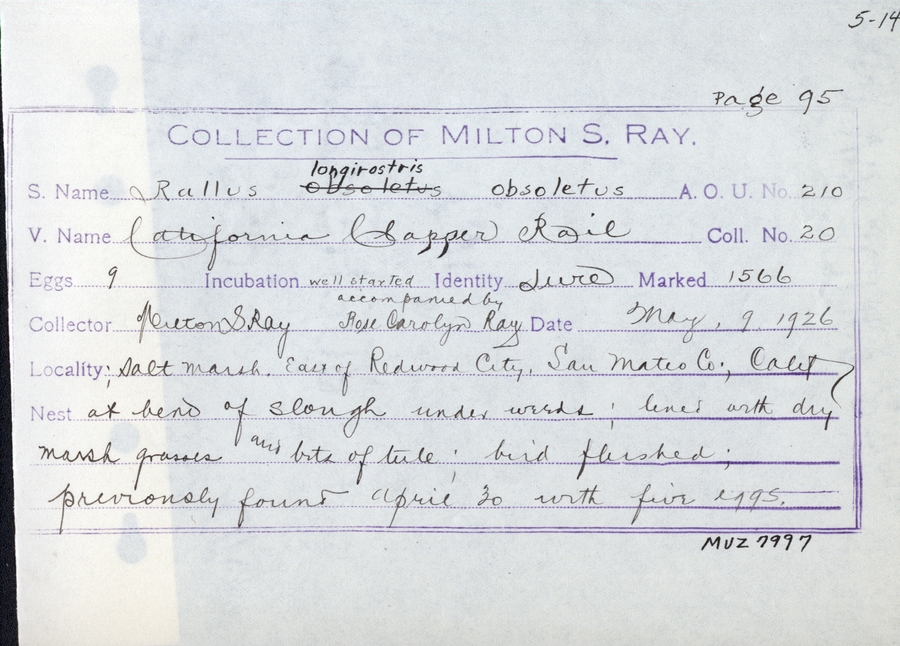 5-14
Page 95
COLLECTION OF MILTON S. RAY.
longirostris
S. Name Rallus obsoletus obsoletus A. O. U. No. 210
V. Name California Clapper Rail Coll. No. 20
Eggs 9 Incubation well started Identity Sure Marked 1566
accompanied by
Collector Milton S Ray Rose Carolyn Ray Date May, 9, 1926
Locality; salt marsh. East of Redwood City, San Mateo Co., Calif
Nest at bend of slough under weeds; lined with dry
marsh grasses and bits of tule; bird flushed;
previously found April 30 with five eggs.
MVZ 7997